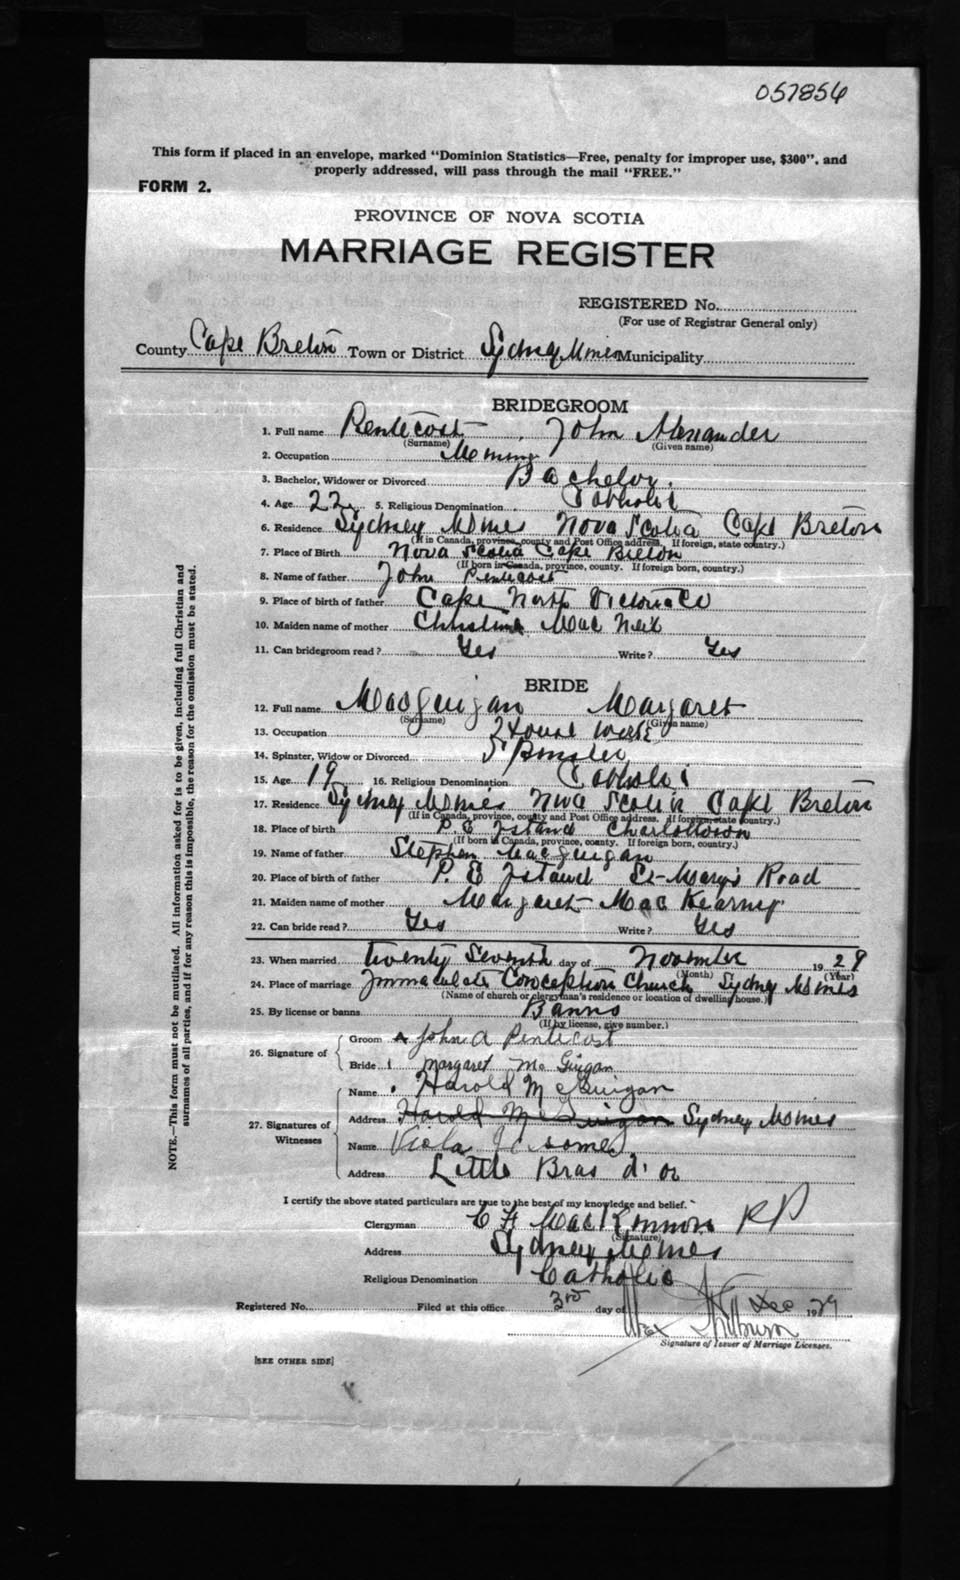 057856
This form if placed in an envelope, marked "Dominion Statistics—Free, penalty for improper use, $300", and
properly addressed, will pass through the mail "FREE."
FORM 2.
PROVINCE OF NOVA SCOTIA
MARRIAGE REGISTER
REGISTERED No.
(For use of Registrar General only)
County Cape Breton Town or District Sydney Mines Municipality
BRIDEGROOM
1. Full name Pentecost, John Alexander
(Surname) (Given name)
2. Occupation
3. Bachelor, Widower or Divorced Bachelor.
4. Age 22 5. Religious Denomination Catholic
6. Residence Sydney Mines Nova Scotia Cape Breton
(If in Canada, province, county and Post Office address. If foreign, state country.)
7. Place of Birth Nova Scotia Cape Breton
(If born in Canada, province, county. If foreign born, country.)
8. Name of father John Pentecost
9. Place of birth of father Cape North Victoria Co
10. Maiden name of mother Christina Mac Neil
11. Can bridegroom read? Yes Write? Yes
BRIDE
12. Full name MacGuigan Margaret
(Surname) (Given name)
13. Occupation House Work
14. Spinster, Widow or Divorced Spinster
15. Age 19 16. Religious Denomination Catholic
17. Residence Sydney Mines Nova Scotia Cape Breton
(If in Canada, province, county and Post Office address. If foreign, state country.)
18. Place of birth P. E Island Charlottetown
(If born in Canada, province, county. If foreign born, country.)
19. Name of father Stephen MacGuigan
20. Place of birth of father P. E Island St-Mary's Road
21. Maiden name of mother Margaret Mac Kearney
22. Can bride read? Yes Write? Yes
23. When married Twenty Seventh day of November 1929
(Month) (Year)
24. Place of marriage Immaculate Conception Church Sydney Mines
(Name of church or clergyman's residence or location of dwelling house.)
25. By license or banns Banns
(If by license, give number.)
26. Signature of
Groom John A Pentecost
Bride Margaret Mc Guigan
27. Signatures of Witnesses
Name Harold McGuigan
Address Harold McGuigan Sydney Mines
Name Viola
Address Little Bras d'or
I certify the above stated particulars are true to the best of my knowledge and belief.
Clergyman C F MacKinnon PP
(Signature)
Address Sydney Mines
Religious Denomination Catholic
Registered No. Filed at this office 3rd day of Dec 1929
Signature of Issuer of Marriage Licenses.
[SEE OTHER SIDE]
NOTE.—This form must not be mutilated. All information asked for is to be given, including full Christian and
surnames of all parties, and if for any reason this is impossible, the reason for the omission must be stated.